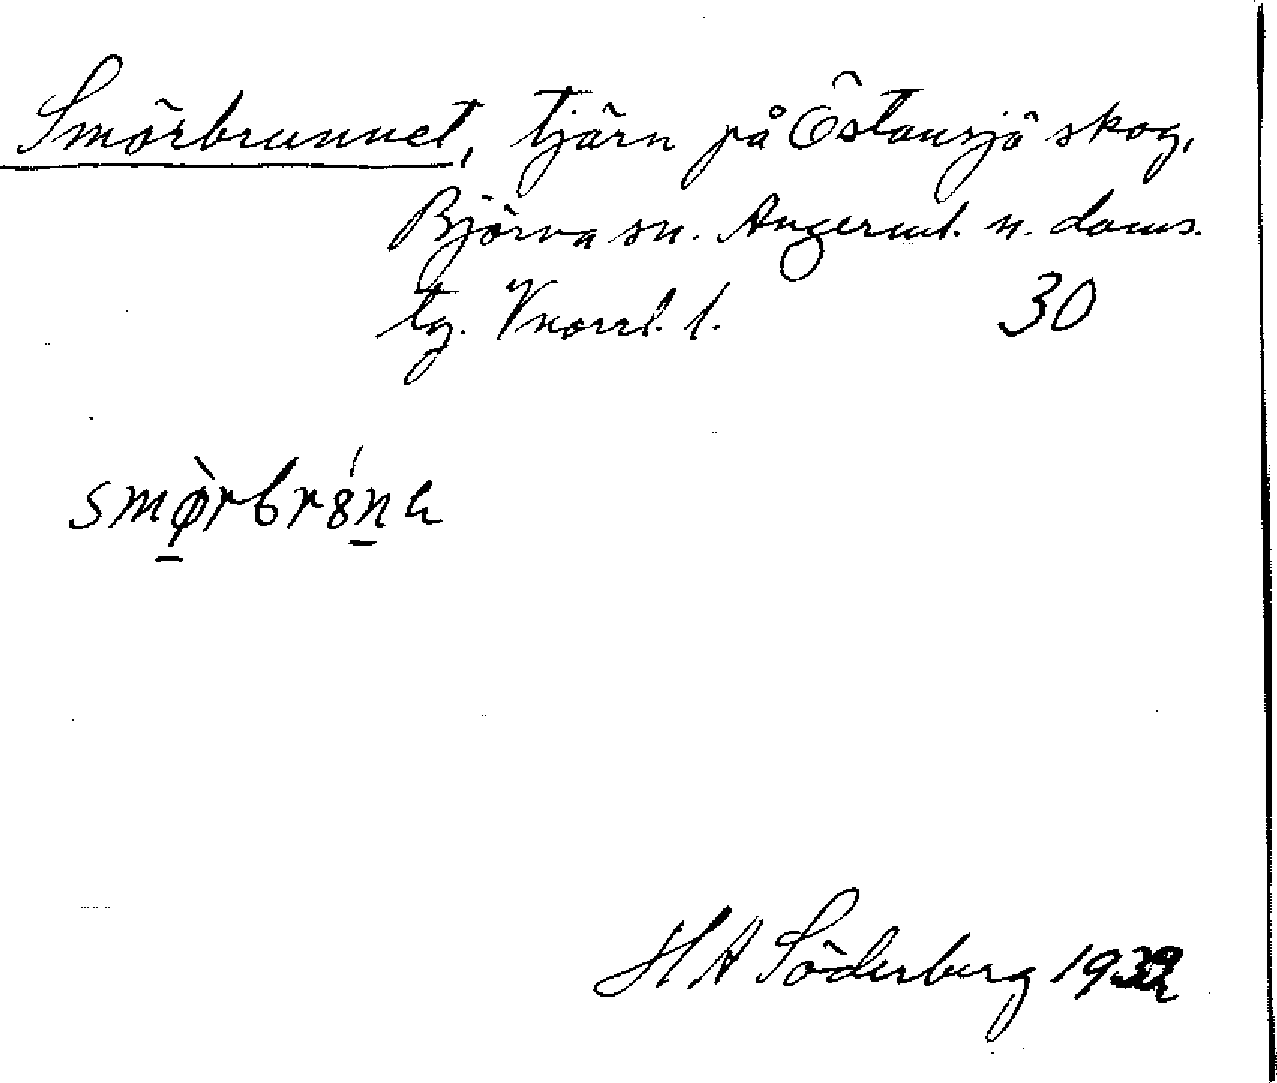 Smörbrunnet, tjärn på Östansjö skog,
Björna sn. Ångerml. n. doms.
tg. Vnorrl. l. 30
smø̀rbrȣ́na
H A Söderberg 1932